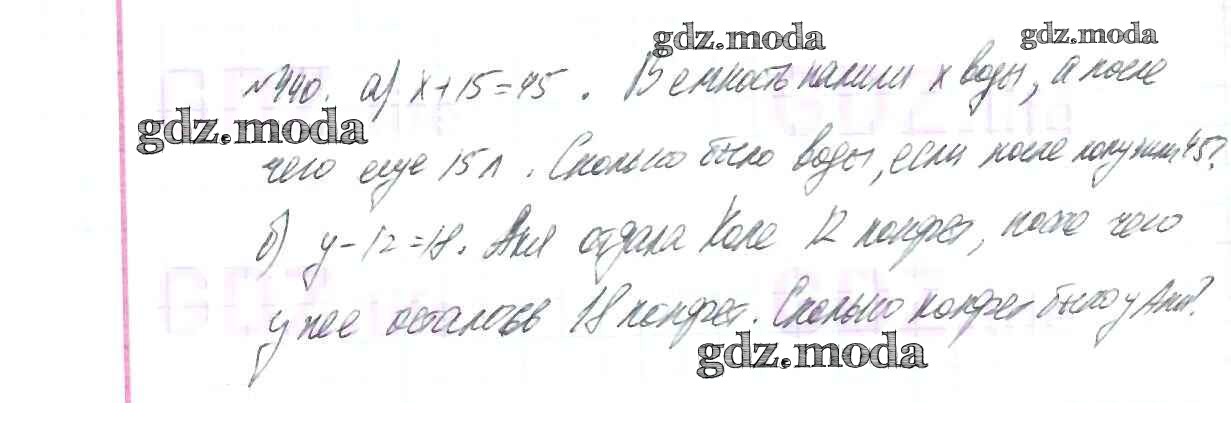 gdz.moda gdz.moda
№440. а) x+15=45. В емкость налили x воды, а после
gdz.moda
чего еще 15 л. Сколько было воды, если после получили 45?
б) y-12=18. Аня отдала Коле 12 конфет, после чего
у нее осталось 18 конфет. Сколько конфет было у Ани?
gdz.moda